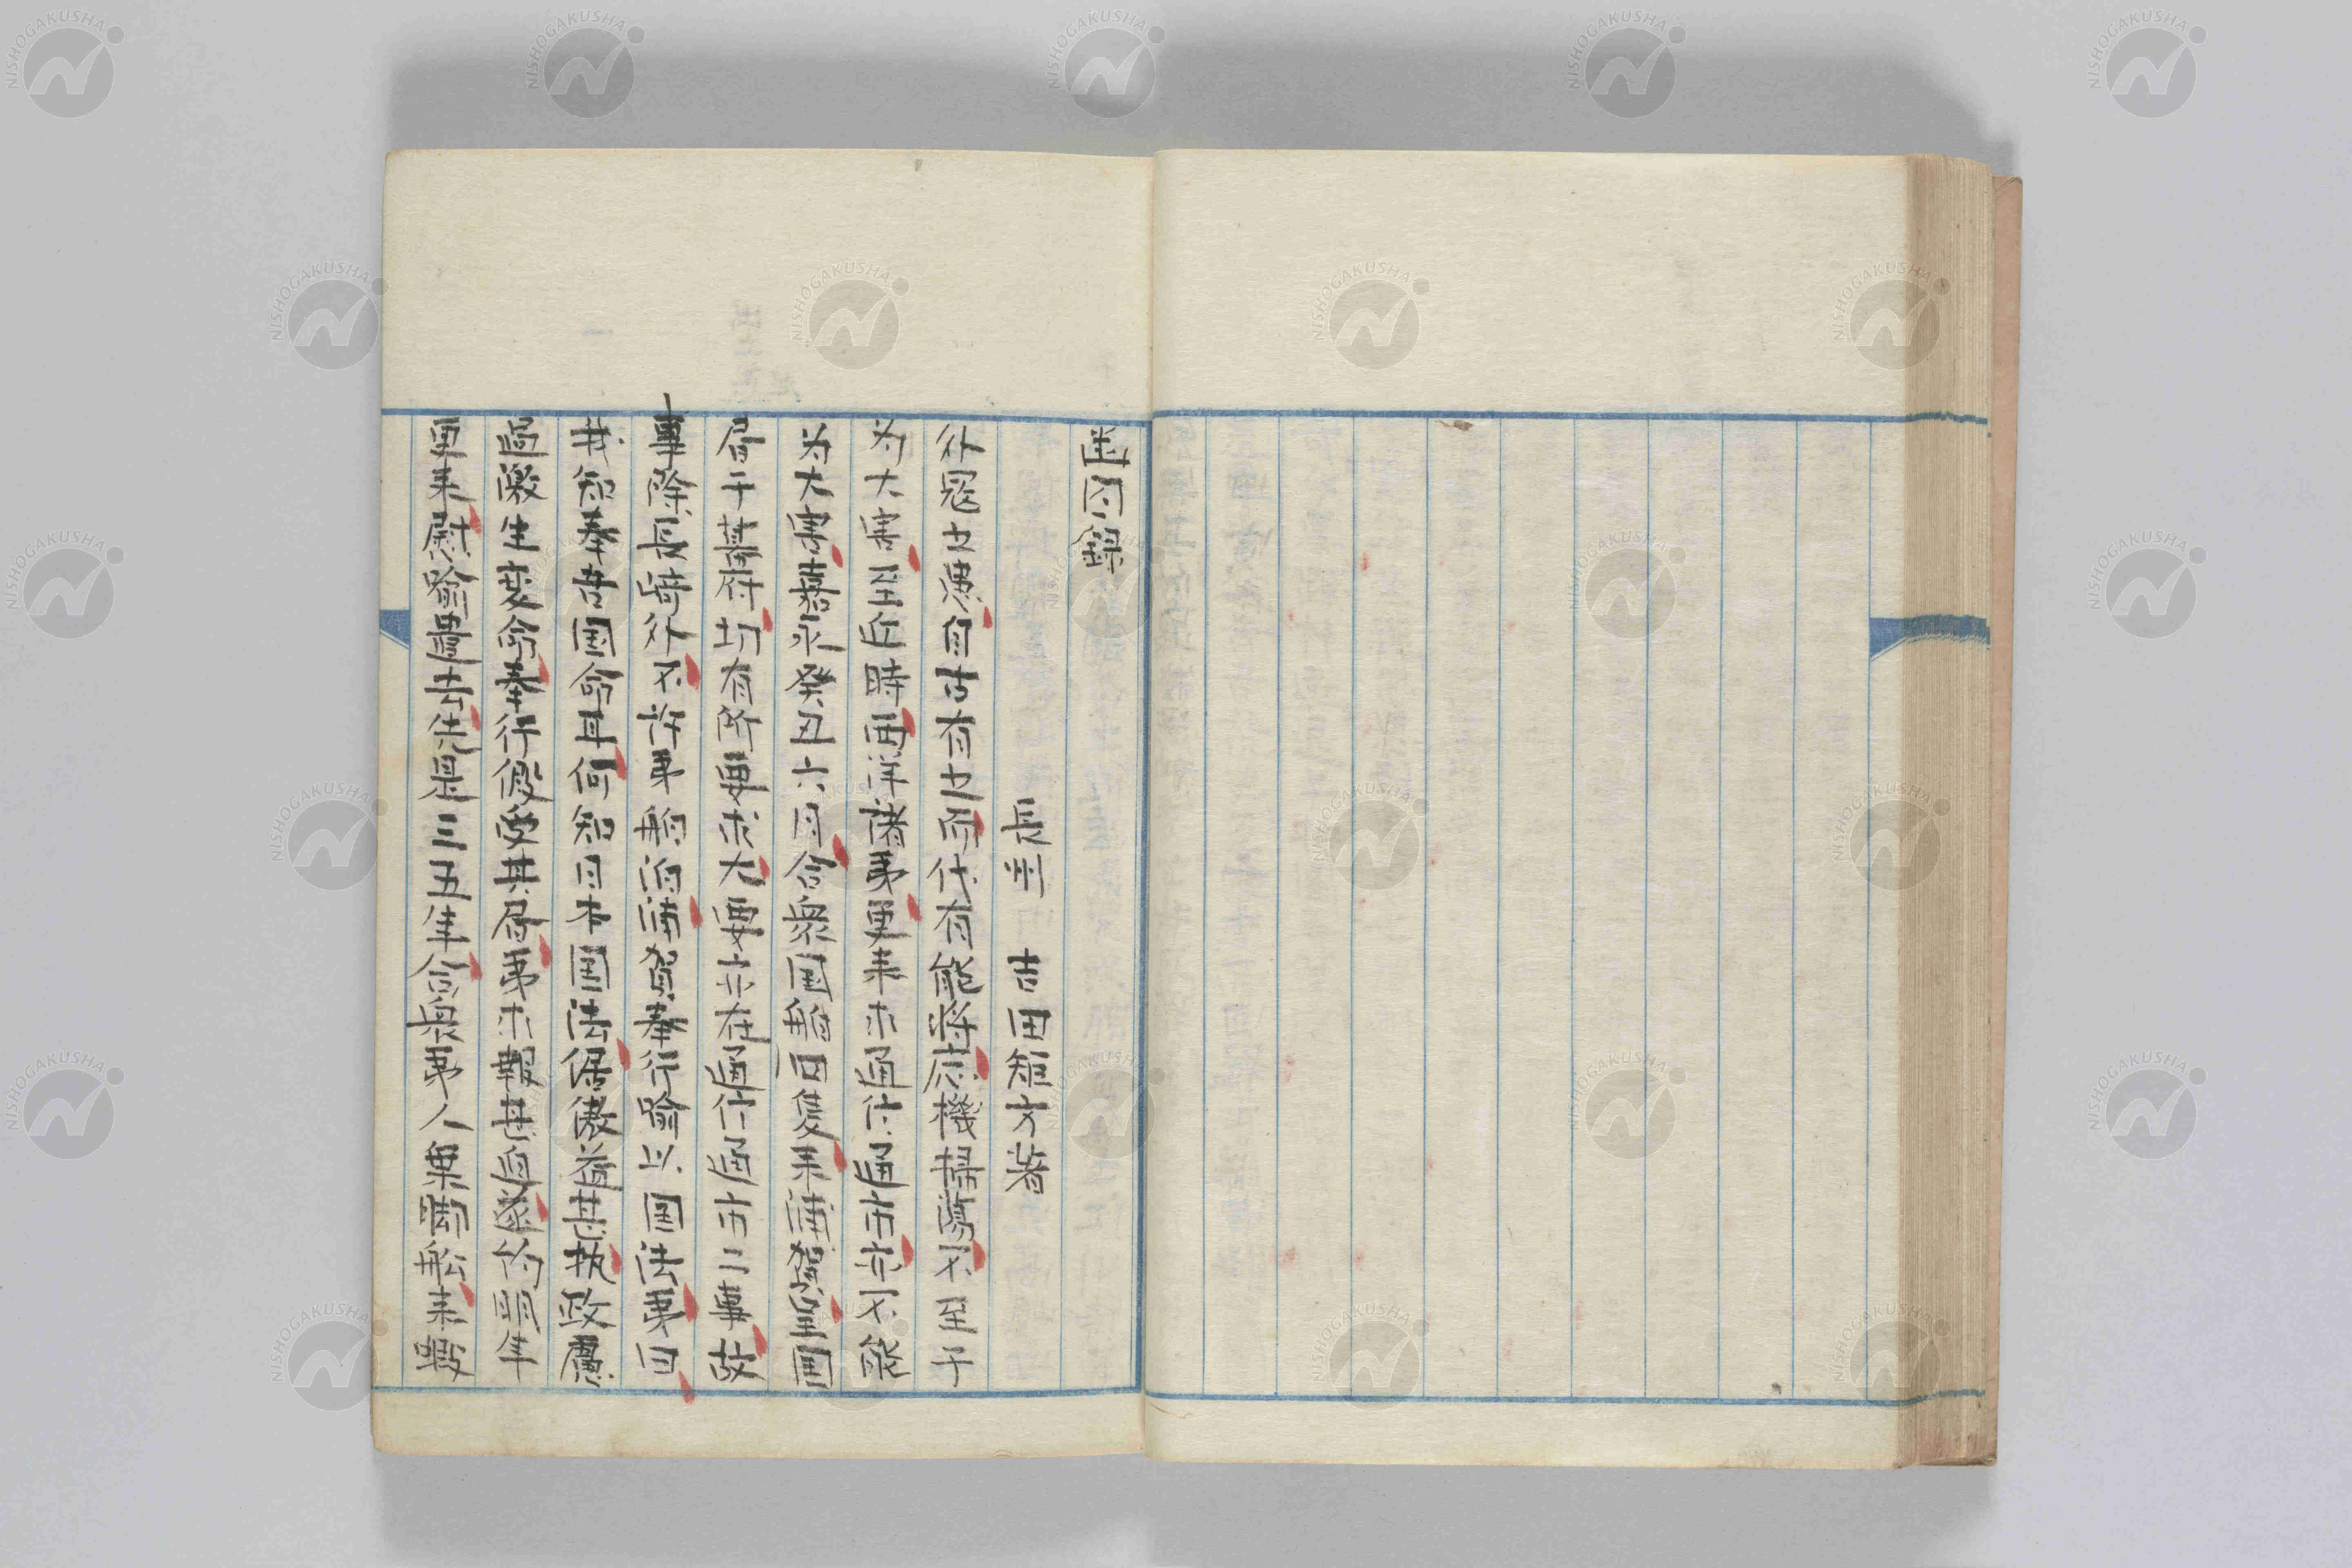 幽囚録
長州 吉田矩方著
外冦之患自古有之而代有能将応機掃蕩不至于
为大害至近時西洋諸夷更来求通信通市亦不能
为大害嘉永癸丑六月合衆国舶四隻来浦賀呈国
書于幕府切有所要求大要亦在通信通市二事故
事除長崎外不許夷舶泊浦賀奉行喩以国法夷曰
我知奉吾国命耳何知日本国法倨傲益甚执政慮
過激生変命奉行假受其書夷求報甚迫遂约明年
更来慰喩遣去先是三五年合衆夷人棄脚船来蝦
NISHOGAKUSHA